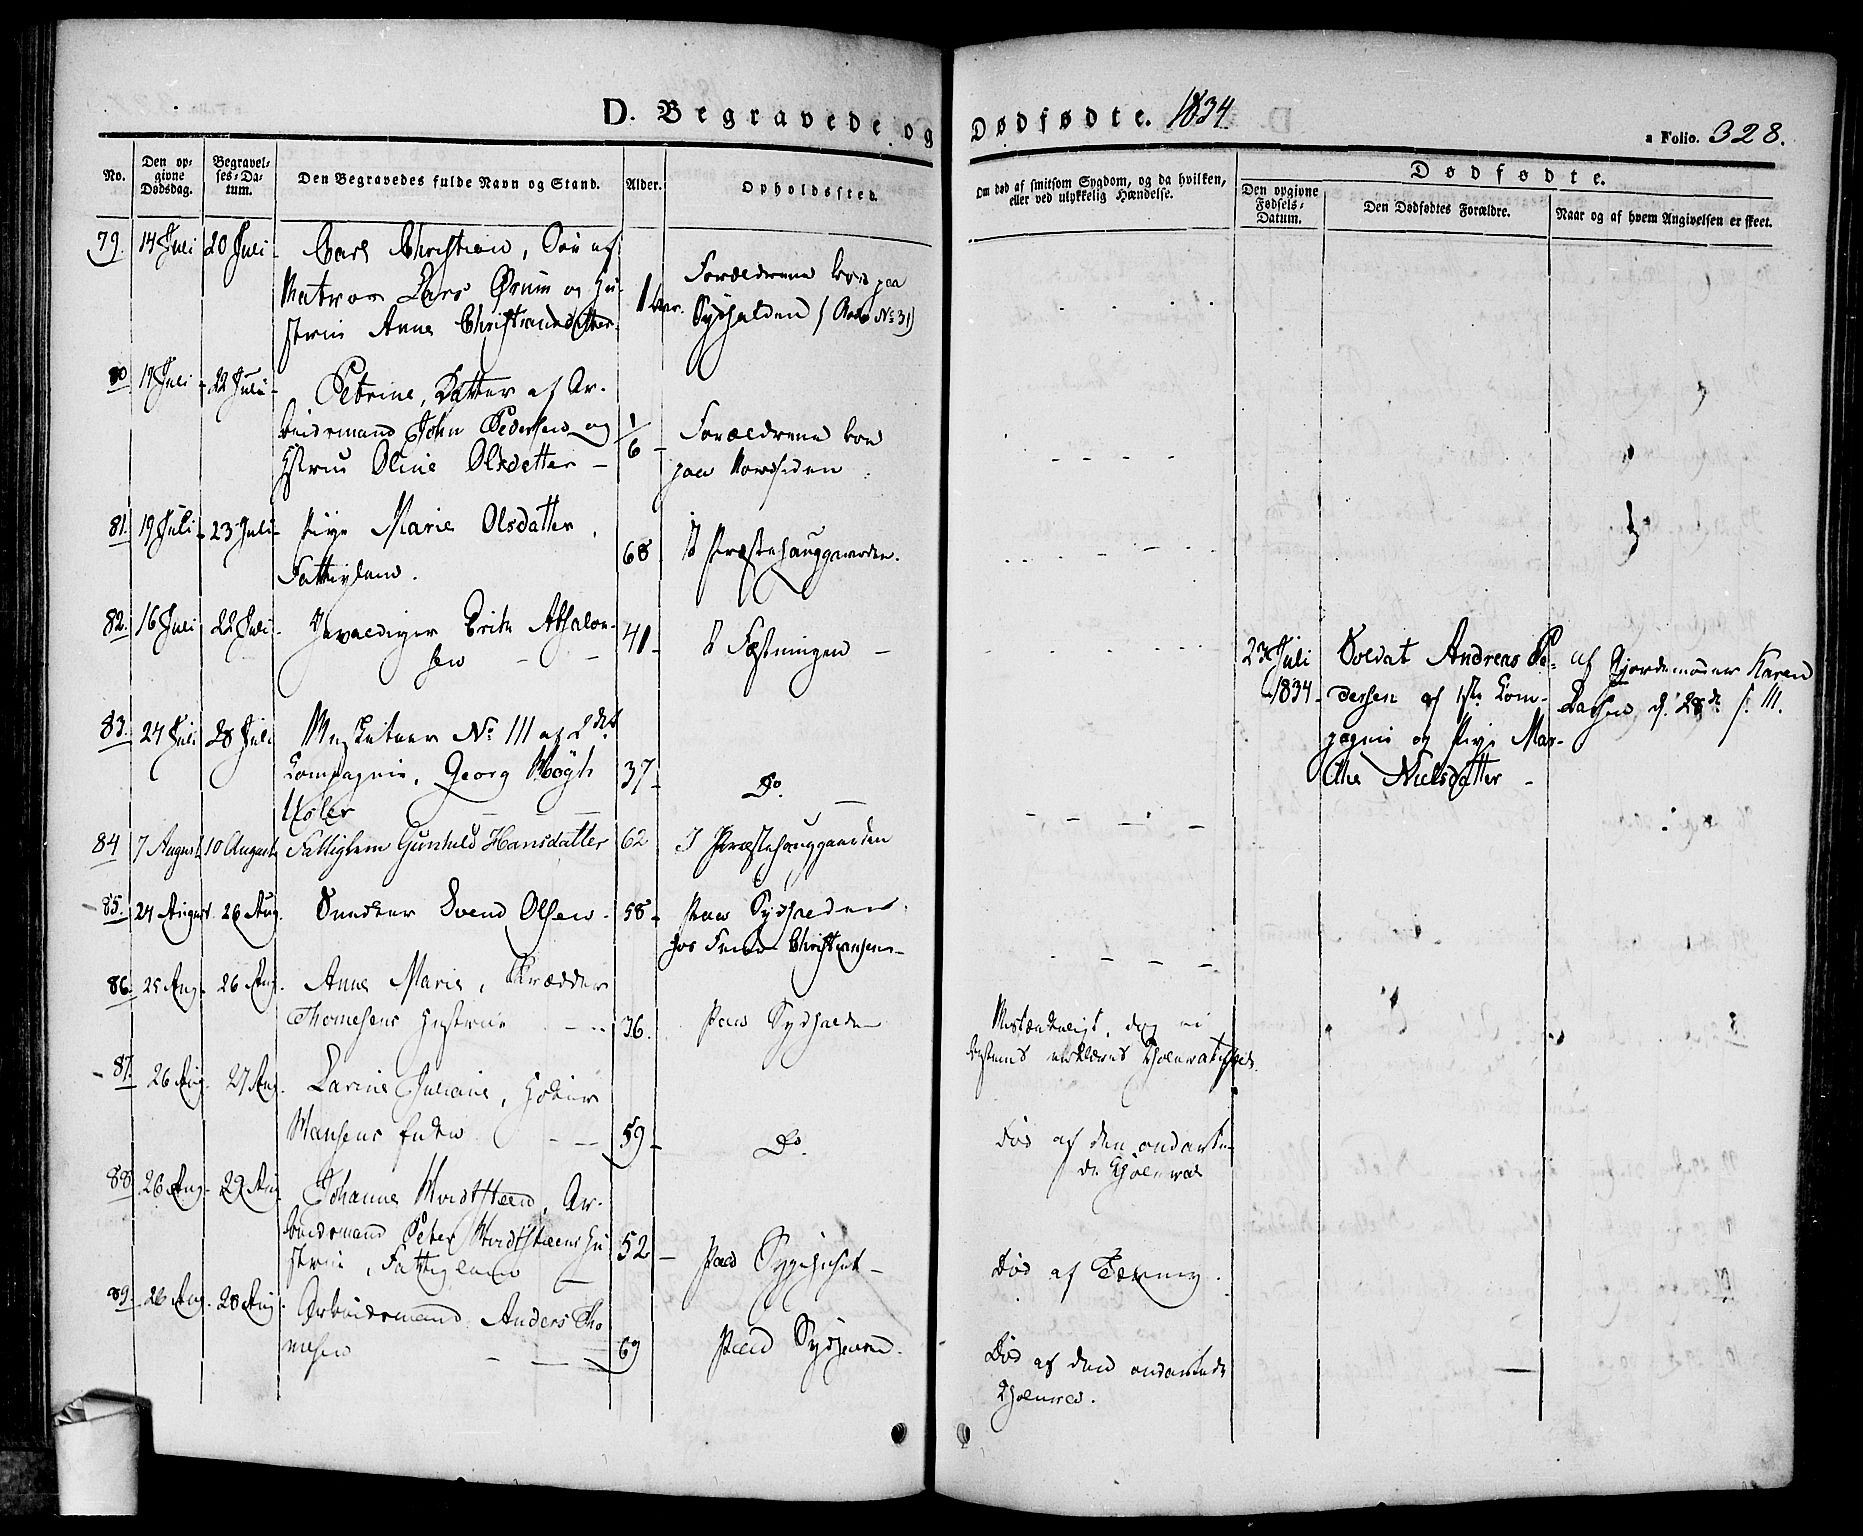 D. Begravede og Dødfødte. 1834
a Folio. 328.
No.
Den op-
givne
Dødsdag.
Begravel-
ses-Da-
tum.
Den Begravedes fulde Navn og Stand.
Alder.
Opholdssted.
Om død af smitsom Sygdom, og da hvilken,
eller ved ulykkelig Hændelse.
Dødfødte.
Den opgivne
Fødsels-
Datum.
Den Dødfødtes Forældre.
Naar og af hvem Angivelsen er skeet.
79. 14 Juli 20 Juli
Carl Christian, Søn af
Matros Lars Ørum og Hu-
strue Anne Christiansdatter
1 Aar.
Forældrene boe paa
Sydhalden (No 31)
80 19 Juli 22 Juli
Petrine, Datter af Ar-
beidsmand John Pedersen og
Hstrue Oline Olsdatter
1/6
Forældrene boe
paa Nordsiden
81. 19 Juli 23 Juli
Pige Marie Olsdatter,
Fattiglem.
68
I Præstehauggaarden.
82. 16 Juli 22 Juli
Gevaldiger Erik Absalon-
sen
41
I Fæstningen
23 Juli
1834
Soldat Andreas Pe-
dersen af 1ste Com-
pagnie og Pige Mar-
the Nielsdatter
af Gjordemoder Karen
d. 28de
83. 24 Juli 28 Juli
Musketeer No 111 af 2det
Compagnie, Georg Høgh
37
Do.
84 7 August 10 August
Fattiglem Gunhild Hansdatter
62
I Præstehauggaarden
85. 24 August 26 Aug.
Snedker Svend Olsen
58
Paa Sydhalden
hos Christiansen
86. 25 Aug. 26 Aug.
Anne Marie, Skrædder
Thomesens Hustrue
36.
Paa Sydhalden
Mistænkeligt, dog ei
bestemt erklæret Cholera
87. 26 Aug. 27 Aug.
Larine Juliane, Høker
Hansens Enke
59
Do.
Død af den ondarte-
de Cholera
88 26 Aug. 29 Aug.
Johanne Hvidsteen, Ar-
beidsmand Peter Hvidsteens Hu
strue, Fattiglem
52
Paa Sygehuset
Død af Tæring.
89. 26 Aug. 28 Aug.
Arbeidsmand Anders Tho
mesen
69
Paa
Død af den ondartede
Cholera.